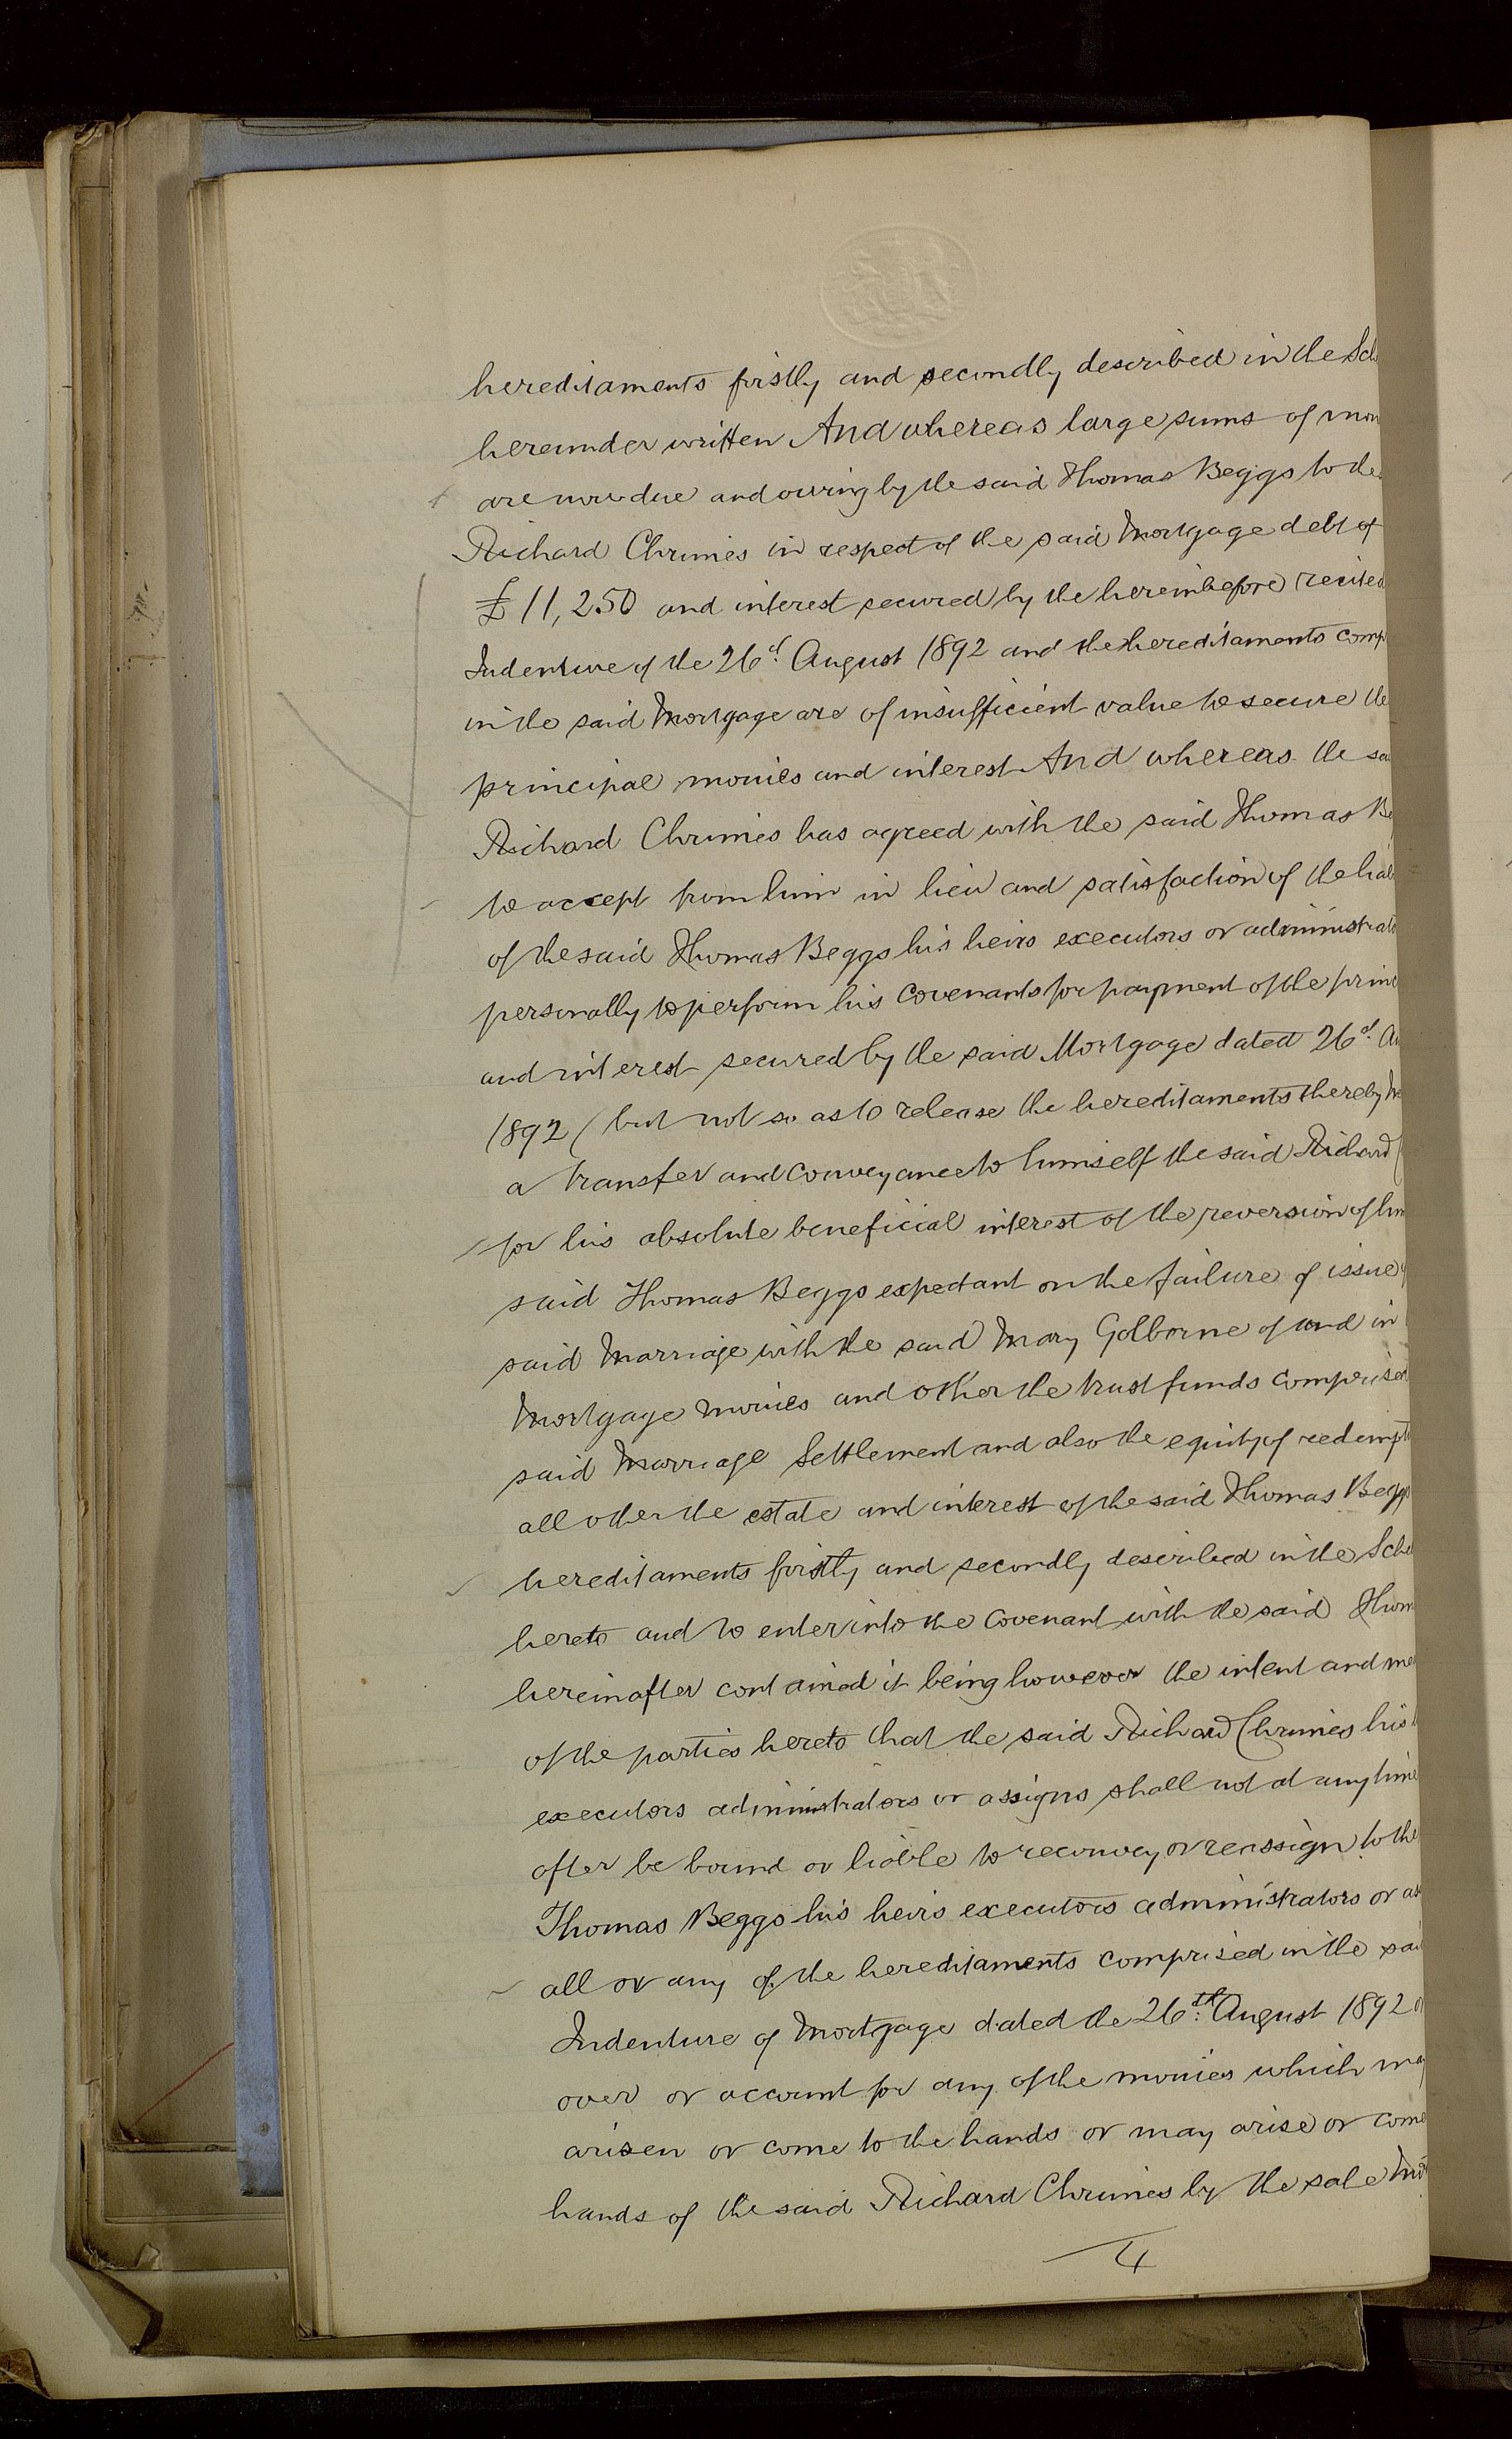 hereditaments firstly and secondly described in the Sch
hereunder written And whereas large sums of mon
are now due and owing by the said Thomas Beggs to the
Richard Chrimes in respect of the said Mortgage debt of
£11,250 and interest secured by the hereinbefore recited
Indenture of the 26d. August 1892 and the hereditaments comp
in the said Mortgage are of insufficient value to secure the
principal monies and interest And whereas the sa
Richard Chrimes has agreed with the said Thomas Be
to accept from him in lieu and satisfaction of the liab
of the said Thomas Beggs his heirs executors or administrato
personally to perform his Covenants for payment of the princ
and interest secured by the said Mortgage dated 26d. Au
1892 (but not so as to release the hereditaments thereby Mo
a transfer and Conveyance to himself the said Richard C
for his absolute beneficial interest of the reversion of him
said Thomas Beggs expectant on the failure of issue
said Marriage with the said Mary Golborne of and in
Mortgage Monies and other the trust funds comprised
said Marriage Settlement and also the equity of redempt
all other the estate and interest of the said Thomas Beggs
hereditaments firstly and secondly described in the Sche
hereto and to enter into the Covenant with the said Thom
hereinafter contained it being however the intent and me
of the parties hereto that the said Richard Chrimes his
executors administrators or assigns shall not at any time
after be bound or liable to reconvey or reassign to the
Thomas Beggs his heirs executors administrators or as
all or any of the hereditaments comprised in the said
Indenture of Mortgage dated the 26th. August 1892 o
over or account for any of the monies which may
arisen or come to the hands or may arise or come
hands of the said Richard Chrimes by the sale Mo
4